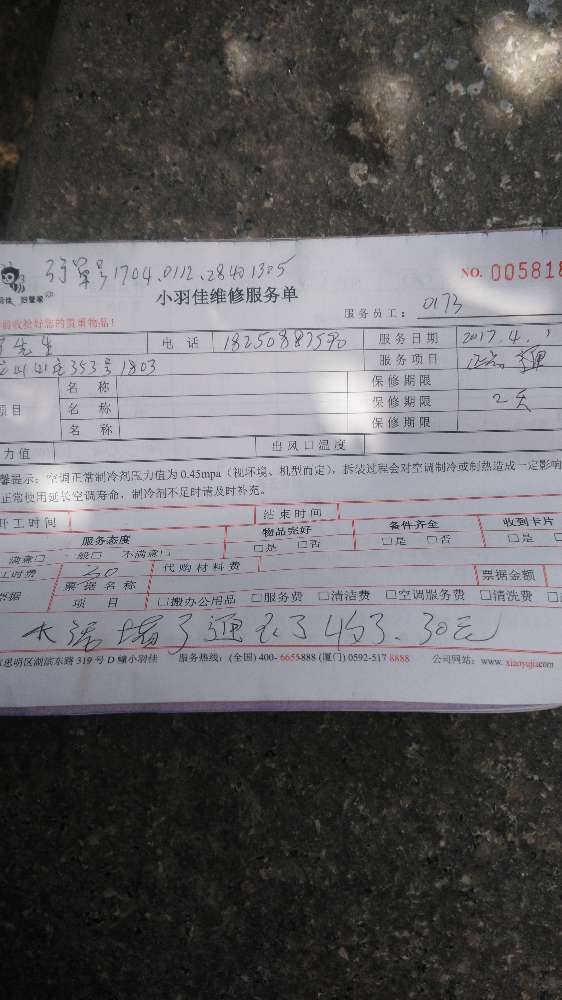 订单号1704.0112.28401305
NO. 005818
小羽佳维修服务单
服务员工: 0173
前收捡好您的贵重物品!
先生 电 话 18250887590 服务日期 2017.4.
353号1803 服务项目
名 称 保修期限
项目 名 称 保修期限 2天
名 称 保修期限
力值 出风口温度
馨提示: 空调正常制冷剂压力值为 0.45mpa (视环境、机型而定), 拆装过程会对空调制冷或制热造成一定影响
正常使用延长空调寿命, 制冷剂不足时请及时补充。
开工时间 结束时间
服务态度 物品完好 备件齐全 收到卡片
满意□ 一般□ 不满意□ □是 □否 □是 □否 □是
工时费 30 代购材料费
票据 票据名称 票据金额
项 目 □搬办公用品 □服务费 □清洁费 □空调服务费 □清洗费
水 堵了通 了 30元
思明区前滨东路 319 号 D 幢小羽佳 服务热线: (全国) 400- 6655888 (厦门) 0592-517 8888 公司网站: www. xiaoyuji.com